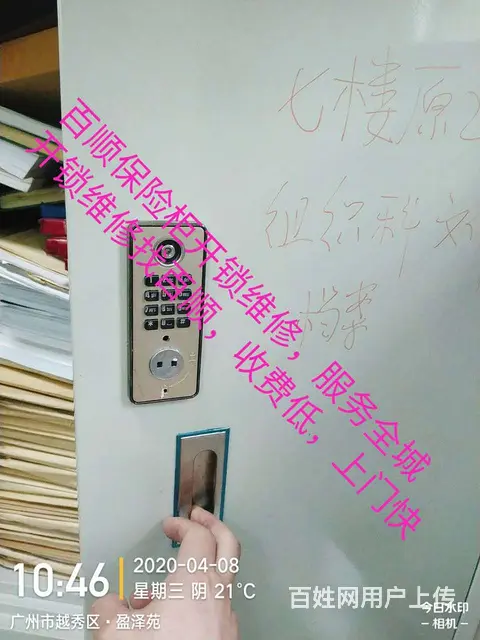 七楼原
组织科
档案
百顺保险柜开锁维修，服务全城
开锁维修找百顺，收费低，上门快
10:46
2020-04-08
星期三 阴 21°C
广州市越秀区·盈泽苑
百姓网用户上传
今日水印
-相机-